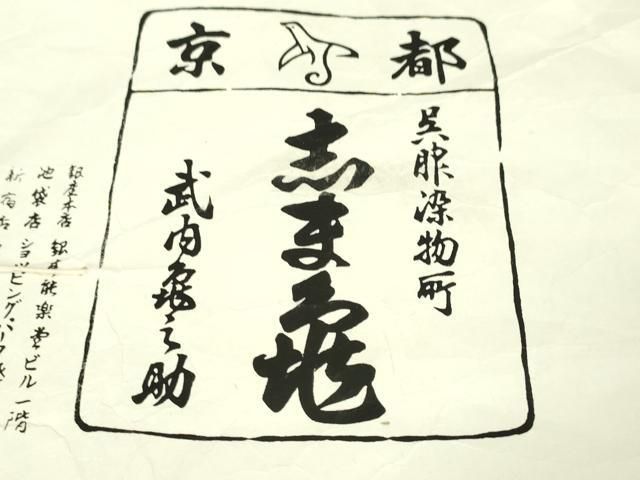 京都
呉服染物所
志ま亀
武内亀之助
銀座本店 銀座能楽堂ビル一階
池袋店 ショッピングパーク
新宿店